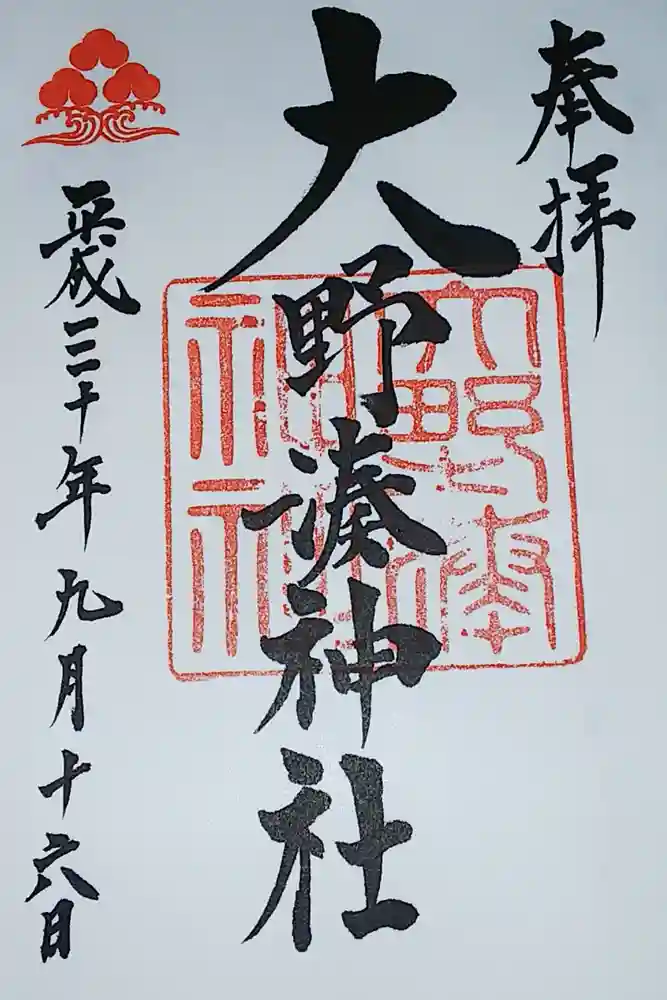 奉拝
大野湊神社
大野湊
神社
平成三十年九月十六日